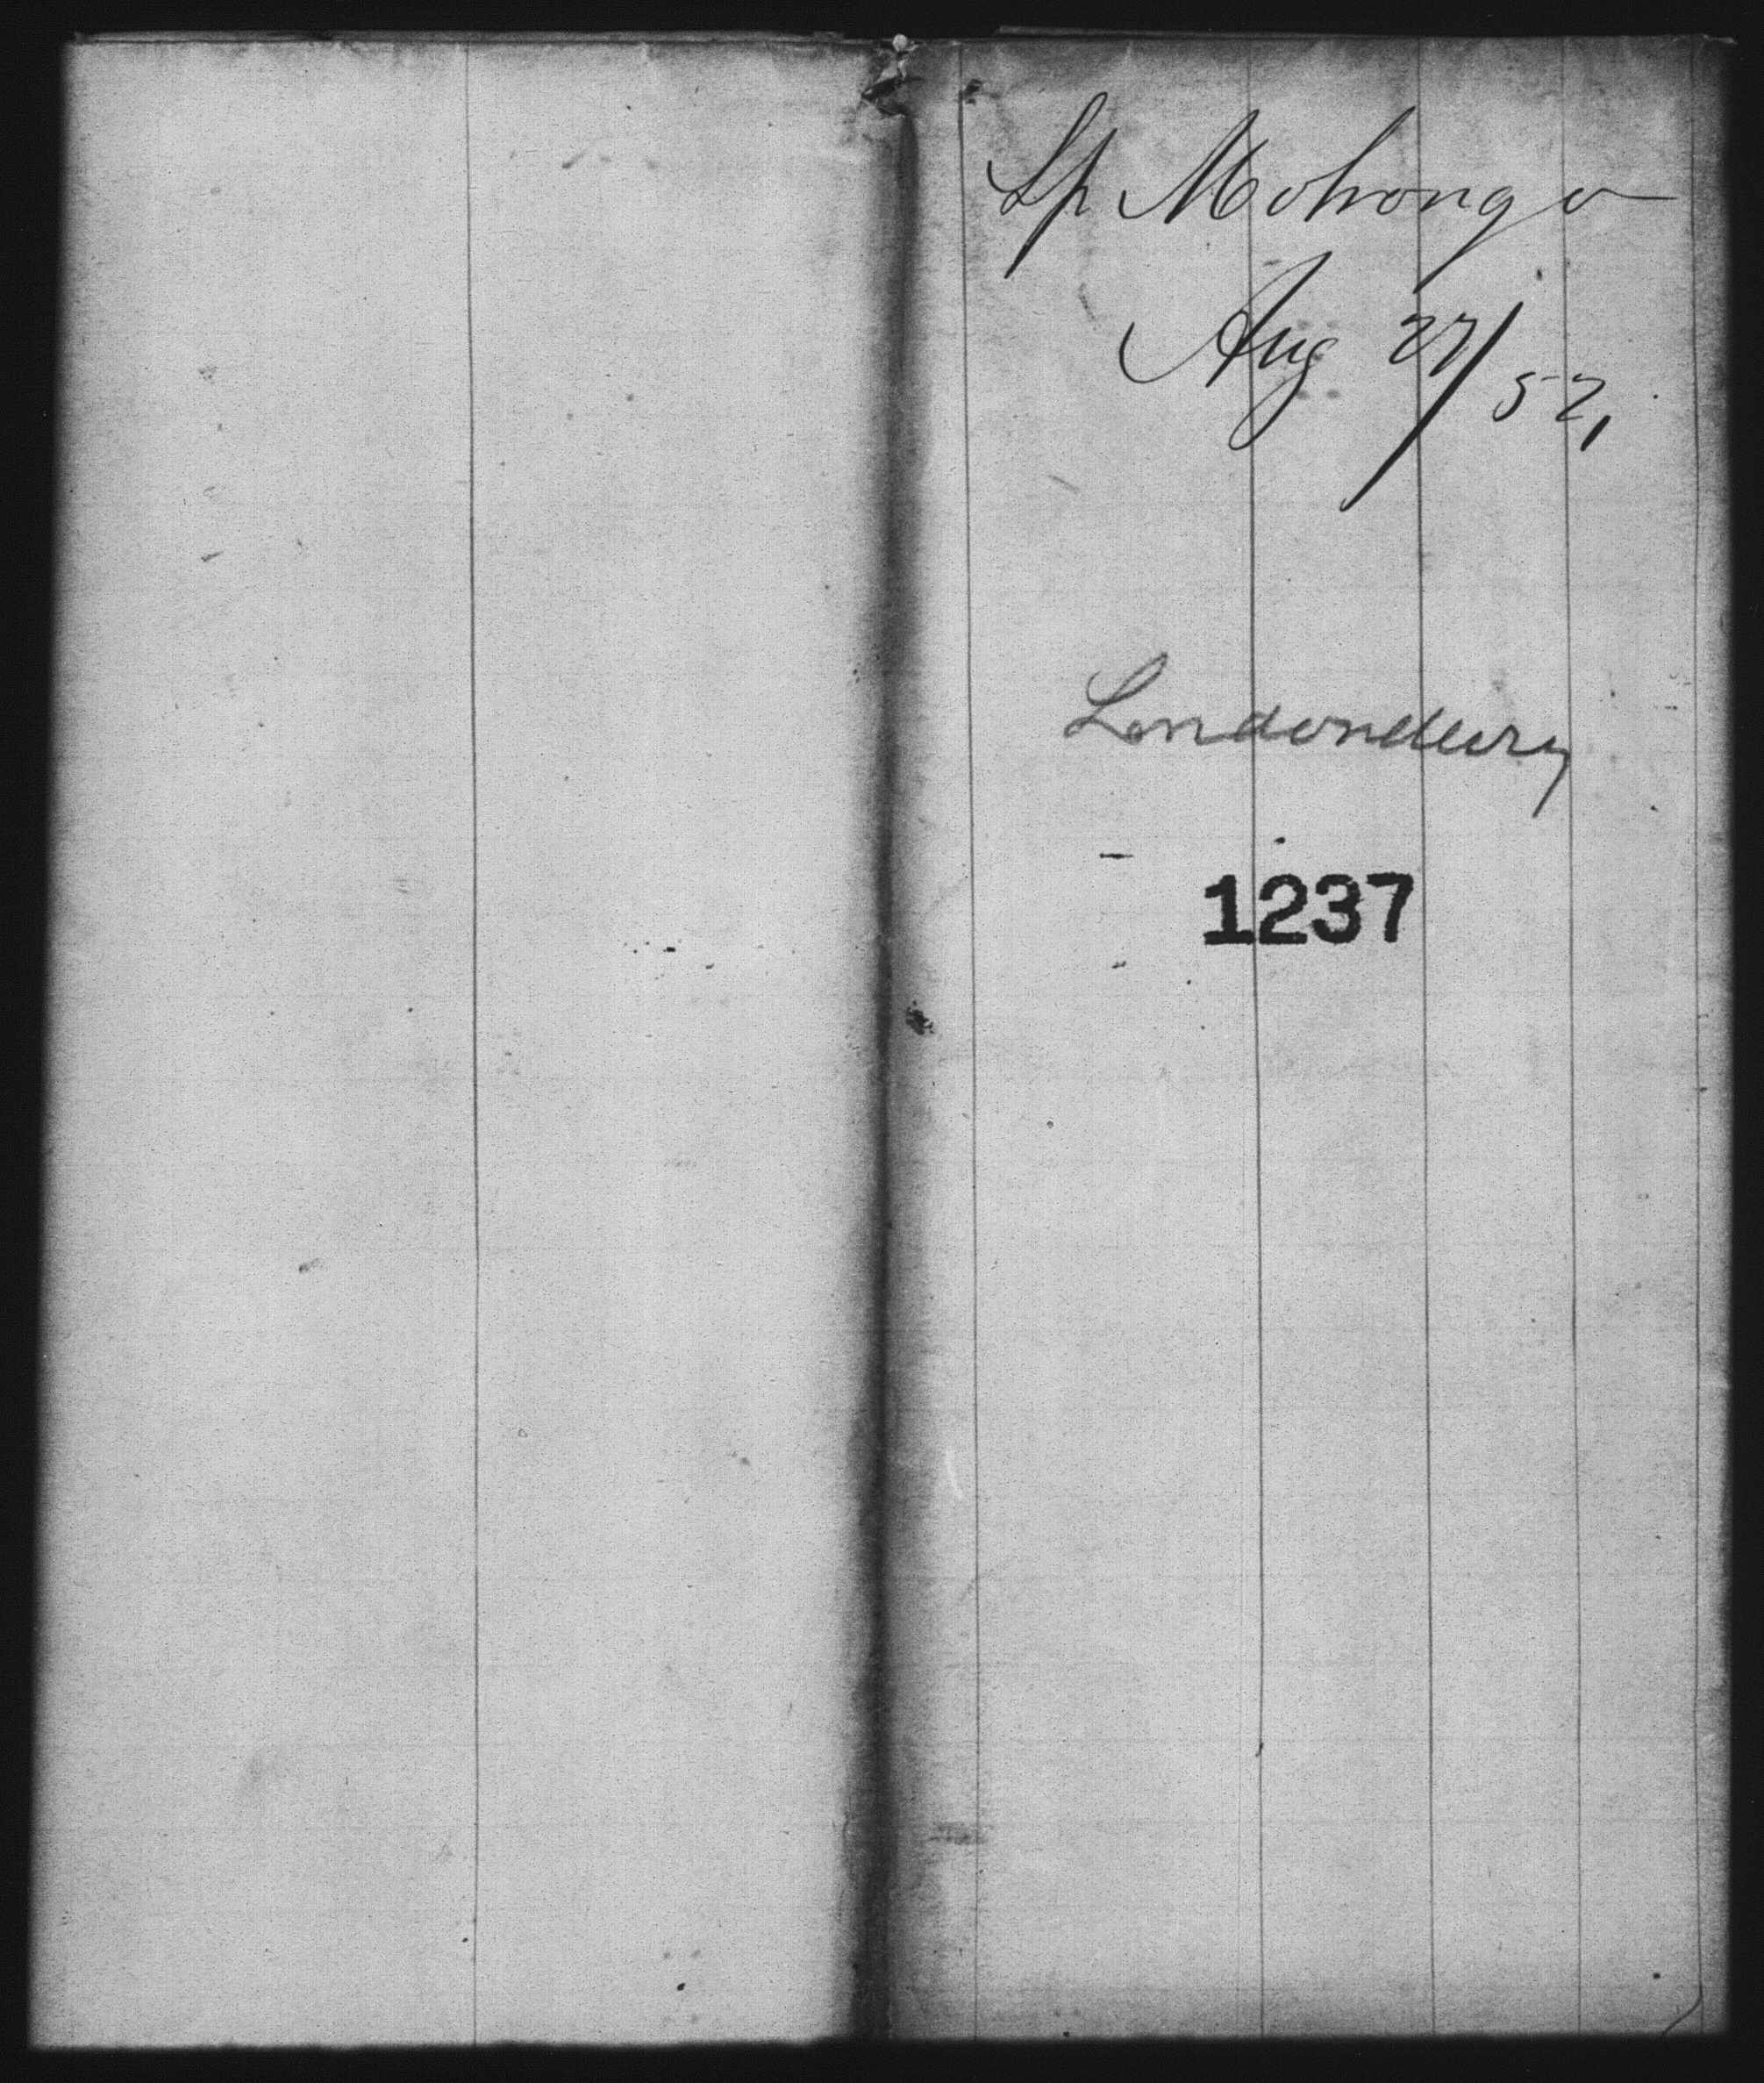 Sp Mohongo
Aug 27/52,
Londonderry
1237